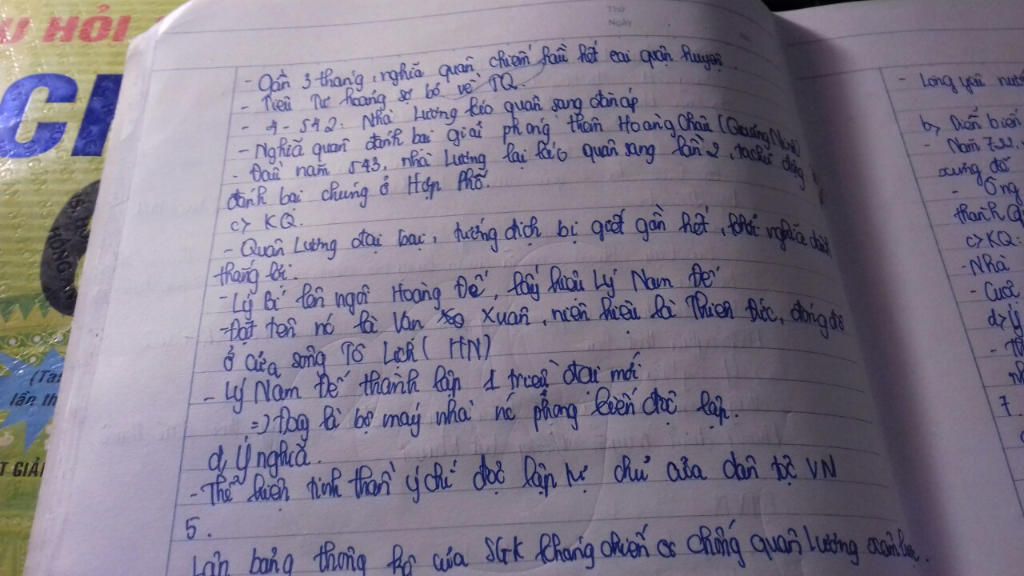 Thứ
Ngày
- Gần 3 tháng, nghĩa quân chiếm hầu hết các quận huyện.
- Tiêu Tư hoảng sợ bỏ về TQ.
- 4-542. Nhà Lương kéo quân sang đàn áp
- Nghĩa quân đánh bại giải phóng thêm Hoàng Châu (
- Đầu năm 543, nhà Lương lại kéo quân sang lần 2, ta chủ động
đánh bại chúng ở Hợp Phố.
c> KQ.
- Quân Lương đại bại, tướng địch bị giết gần hết, khởi nghĩa
thắng lợi.
- Lý Bí lên ngôi Hoàng Đế, lấy hiệu Lý Nam Đế
- Đặt tên nc là Vạn Xuân, niên hiệu là Thiên Đức, đóng đô
ở cửa sông Tô Lịch ( HN)
- Lý Nam Đế thành lập 1 triều đại mới.
=> Đây là bộ máy nhà nc phong kiến độc lập.
d, Ý nghĩa.
- Thể hiện tinh thần ý chí độc lập tự chủ của dân tộc VN
5.
Lập bảng thống kê của SGK kháng chiến chống quân Lương xâm lược.
- Lòng yêu nước
b> Diễn biến
- Năm 722,
xưng đế
- Ông
thành
c> KQ:
- Nhà
- Cuộc
d> Ý
- T
7.
U HỎI
(Tái
lần th
T GIẢI